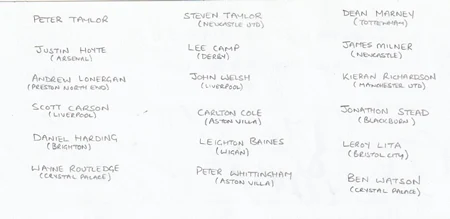 PETER TAYLOR
STEVEN TAYLOR
(NEWCASTLE UTD)
DEAN MARNEY
(TOTTENHAM)
JUSTIN HOYTE
(ARSENAL)
LEE CAMP
(DERBY)
JAMES MILNER
(NEWCASTLE)
ANDREW LONERGAN
(PRESTON NORTH END)
JOHN WELSH
(LIVERPOOL)
KIERAN RICHARDSON
(MANCHESTER UTD)
SCOTT CARSON
(LIVERPOOL)
CARLTON COLE
(ASTON VILLA)
JONATHON STEAD
(BLACKBURN)
DANIEL HARDING
(BRIGHTON)
LEIGHTON BAINES
(WIGAN)
LEROY LITA
(BRISTOL CITY)
WAYNE ROUTLEDGE
(CRYSTAL PALACE)
PETER WHITTINGHAM
(ASTON VILLA)
BEN WATSON
(CRYSTAL PALACE)